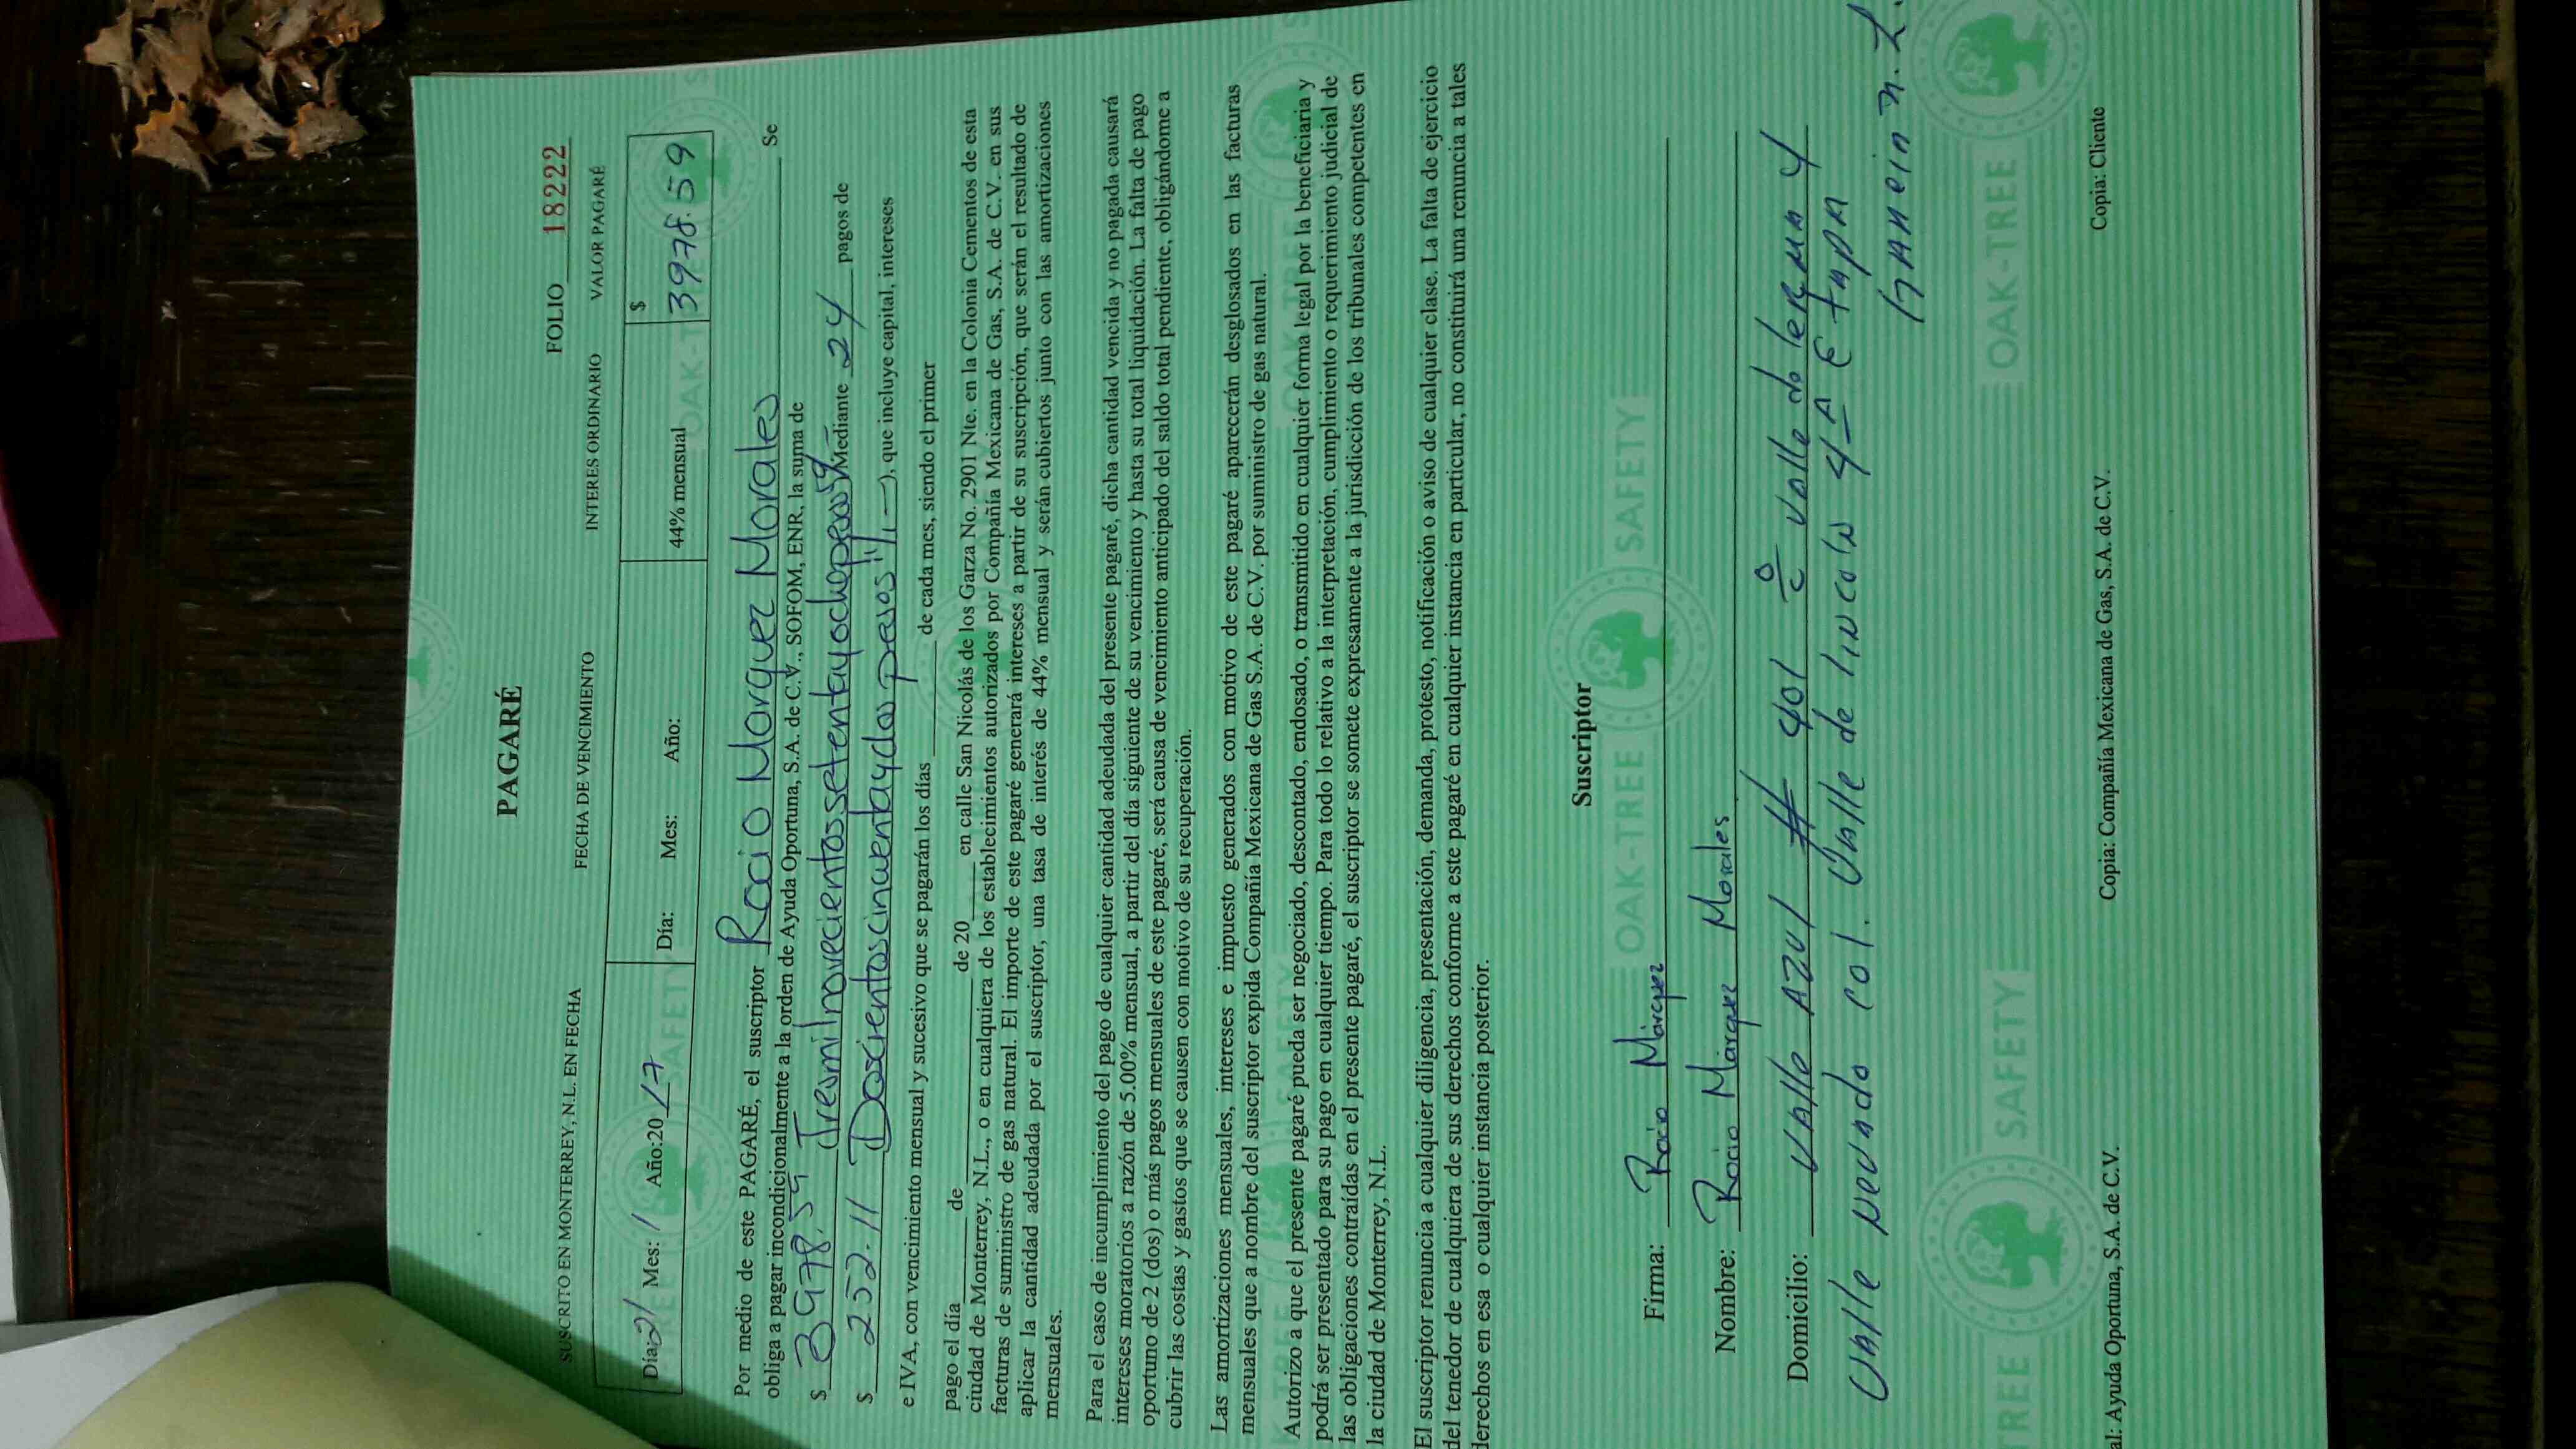 PAGARÉ
FOLIO 18222
SUSCRITO EN MONTERREY, N.L. EN FECHA FECHA DE VENCIMIENTO INTERES ORDINARIO VALOR PAGARÉ
Día: 21 Mes: 1 Año:20 17 Día: Mes: Año: 44% mensual $ 3978.59
Por medio de este PAGARÉ, el suscriptor Rocio Marquez Morales Se
obliga a pagar incondicionalmente a la orden de Ayuda Oportuna, S.A. de C.V., SOFOM, ENR, la suma de
$ 3978.59 (Tresmilnovecientossetentayochopesos 59 Mediante 24 pagos de
$ 252.11 (Doscientoscincuentaydos pesos 11/ ), que incluye capital, intereses
e IVA, con vencimiento mensual y sucesivo que se pagarán los días de cada mes, siendo el primer
pago el día de de 20 en calle San Nicolás de los Garza No. 2901 Nte. en la Colonia Cementos de esta
ciudad de Monterrey, N.L., o en cualquiera de los establecimientos autorizados por Compañía Mexicana de Gas, S.A. de C.V. en sus
facturas de suministro de gas natural. El importe de este pagaré generará intereses a partir de su suscripción, que serán el resultado de
aplicar la cantidad adeudada por el suscriptor, una tasa de interés de 44% mensual y serán cubiertos junto con las amortizaciones
mensuales.
Para el caso de incumplimiento del pago de cualquier cantidad adeudada del presente pagaré, dicha cantidad vencida y no pagada causará
intereses moratorios a razón de 5.00% mensual, a partir del día siguiente de su vencimiento y hasta su total liquidación. La falta de pago
oportuno de 2 (dos) o más pagos mensuales de este pagaré, será causa de vencimiento anticipado del saldo total pendiente, obligándome a
cubrir las costas y gastos que se causen con motivo de su recuperación.
Las amortizaciones mensuales, intereses e impuesto generados con motivo de este pagaré aparecerán desglosados en las facturas
mensuales que a nombre del suscriptor expida Compañía Mexicana de Gas S.A. de C.V. por suministro de gas natural.
Autorizo a que el presente pagaré pueda ser negociado, descontado, endosado, o transmitido en cualquier forma legal por la beneficiaria y
podrá ser presentado para su pago en cualquier tiempo. Para todo lo relativo a la interpretación, cumplimiento o requerimiento judicial de
las obligaciones contraídas en el presente pagaré, el suscriptor se somete expresamente a la jurisdicción de los tribunales competentes en
la ciudad de Monterrey, N.L.
El suscriptor renuncia a cualquier diligencia, presentación, demanda, protesto, notificación o aviso de cualquier clase. La falta de ejercicio
del tenedor de cualquiera de sus derechos conforme a este pagaré en cualquier instancia en particular, no constituirá una renuncia a tales
derechos en esa o cualquier instancia posterior.
Suscriptor
Firma: Rocio Márquez
Nombre: Rocio Márquez Morales
Domicilio: Valle Azul # 401 Valle do lerma y
Valle nevado col. Valle de lincoln 4 A Etapa
Garcia n.L.
OAK-TREE SAFETY
al: Ayuda Oportuna, S.A. de C.V. Copia: Compañía Mexicana de Gas, S.A. de C.V. Copia: Cliente